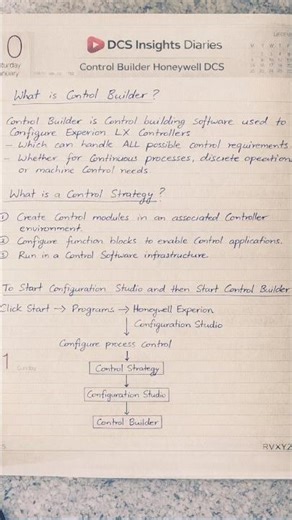 0
DCS Insights Diaries
Control Builder Honeywell DCS
What is Control Builder?
Control Builder is Control building software used to
Configure Experion LX Controllers
- Which can handle ALL possible control requirements.
- Whether for Continuous processes, discrete operations
or machine control needs
What is a Control Strategy?
① Create Control modules in an associated Controller
environment.
② Configure function blocks to enable Control applications.
③ Run in a Control Software infrastructure.
To Start Configuration Studio and then Start Control Builder
Click Start → Programs → Honeywell Experion
↓ Configuration Studio
Configure process Control
↓
Control Strategy
↓
Configuration Studio
↓
Control Builder
1
Sunday
RVXYZ